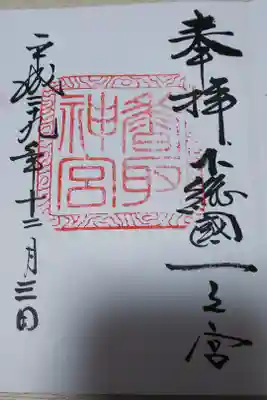 奉拝下総國一之宮
香取
神宮
平成二九年十二月三日